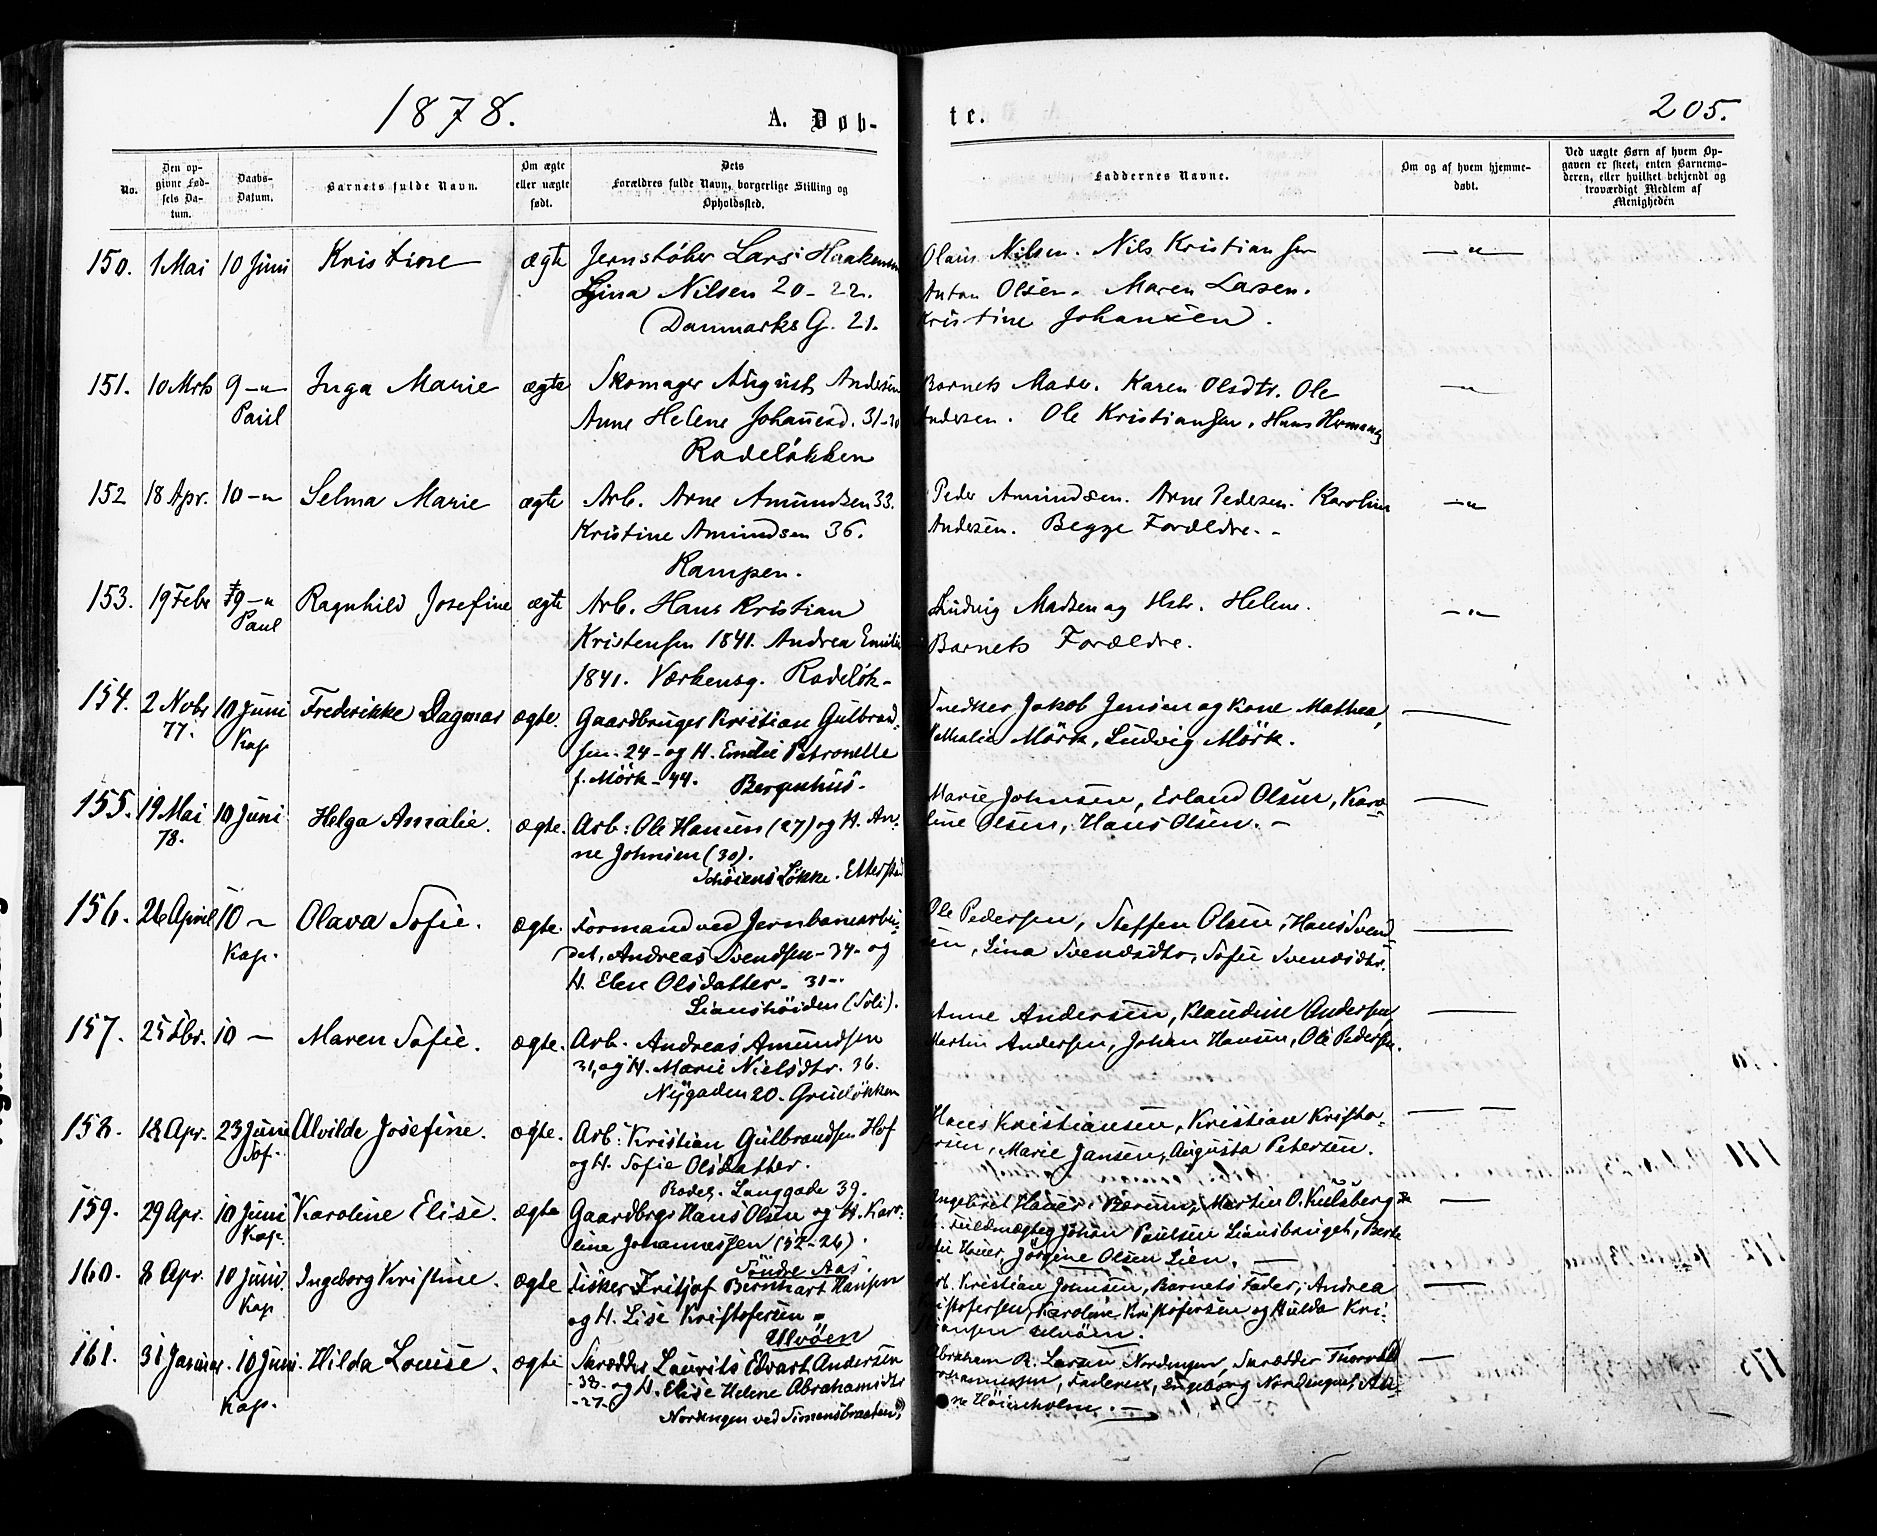 1878.
A. Døb-
te.
205.
No.
Den op-
givne Fød-
sels Da-
tum.
Daabs-
Datum.
Barnets fulde Navn.
Om ægte
eller uægte
født.
Dets
Forældres fulde Navn, borgerlige Stilling og
Opholdssted.
Faddernes Navne.
Om og af hvem hjemme-
døbt.
Ved uægte Børn af hvem Op-
gaven er skeet, enten Barnemo-
deren, eller hvilket bekjendt og
troværdigt Medlem af
Menigheden
150. 1 Mai 10 Juni Kristine ægte Jernstøber Lars Haakensen
Nilsen 20-22.
Danmarks G. 21.
Olaus Nilsen. Nils Kristiansen
Anton Olsen. Maren Larsen.
Kristine Johansen.
—"—
151. 10 Mrts 9 —"—
Paul
Inga Marie ægte Skomager August Andersen
Anne Helene Johannesd. 31-30
Rodeløkken
Barnets Moder. Karen Olsdtr. Ole
Andersen. Ole Kristiansen, Hans
—"—
152 18 Apr. 10 —"— Selma Marie ægte Arb. Arne Amundsen 33.
Kristine Amundsen 36.
Kampen.
Peder Amundsen. Arne Pedersen. Karoline
Andersen. Begge Forældre. -
—"—
153. 19 Febr 9 —"—
Paul
Ragnhild Josefine ægte Arb. Hans Kristian
Kristensen 1841. Andrea Emilie
1841. Værkensg. Rodeløk-
Ludvig Madsen og Hstr. Helene.
Barnets Forældre.
—"—
154. 2 Novbr
77.
10 Juni
Kap
Frederikke Dagmar ægte. Gaardbruger Kristian Gulbrand-
sen - 24 - og H. Emilie Petronelle
f. Mörk - 44. Bergenhus.
Snedker Jakob Jensen og Kone Mathea,
Mörk, Ludvig Mörk.
155. 19 Mai
78.
10 Juni Helga Amalie. ægte. Arb: Ole Hansen (27) og H. An-
ne Johnsen (30).
Schöiens Løkke. Etterstad
Marie Johnsen, Erland Olsen, Karo-
line Olsen, Hans Olsen. -
156. 26 April 10 —
Kap.
Olava Sofie. ægte. Formand ved Jernbanearbei-
det, Andreas Svendsen - 34 - og
H. Elen Olsdatter - 31 -.
Lianshöiden (Soli).
Ole Pedersen, Steffen Olsen, Hans Svend-
sen, Lina Svendsdtr, Sofie Svendsdtr.
157. 25 Fbr. 10 — Maren Sofie. ægte. Arb. Andreas Amundsen
31, og H. Marie Nielsdtr. 36.
Nygaden 20. Grueløkken
Anne Andersen, Klaudine Andersen,
Martin Andersen, Johan Hansen, Ole Pedersen.
158. 18 Apr. 23 Juni
Sof.
Alvilde Josefine. ægte. Arb: Kristian Gulbrandsen Hof
og H. Sofie Olsdatter.
Rodel. Langgade 39.
Hans Kristiansen, Kristian Kristo-
fersen, Marie Jansen, Augusta Petersen.
159. 29 Apr. 10 Juni
Kap.
Karoline Elise. ægte Gaardbrgr Hans Olsen og H. Karo-
line Johannessen (32-26).
Söndre Aas.
Ingebret Hauer i Bærum, Martin O. Kulsberg
Fuldmægtig Johan Paulsen Liansbauget, Berte
Hauer, Jörgine Olsen Lien. —
160. 8 Apr. 10 Juni.
Kap
Ingeborg Kristine. ægte Fisker Fritjof Bernhart Hansen
og H. Lise Kristofersen -
Ulvöen
Arb. Kristian Johnsen, Barnets Fader, Andrea
Kristofersen, Karoline Kristofersen og Hulda Kri-
stiansen Ulvöen.
161. 31 Januar. 10 Juni.
Kap.
Hilda Louise. ægte Skrædder Laurits Edvart Andersen
- 38 - og H. Elise Helene Abrahamsdtr
- 27 -
Nordengen ved Simensbraaten
Abraham R. Larsen, Nordengen, Skrædder Thorvald
Johannessen, Faderen, Ingeborg Nordengen, An-
ne Höienholm. —
170
171
172
173